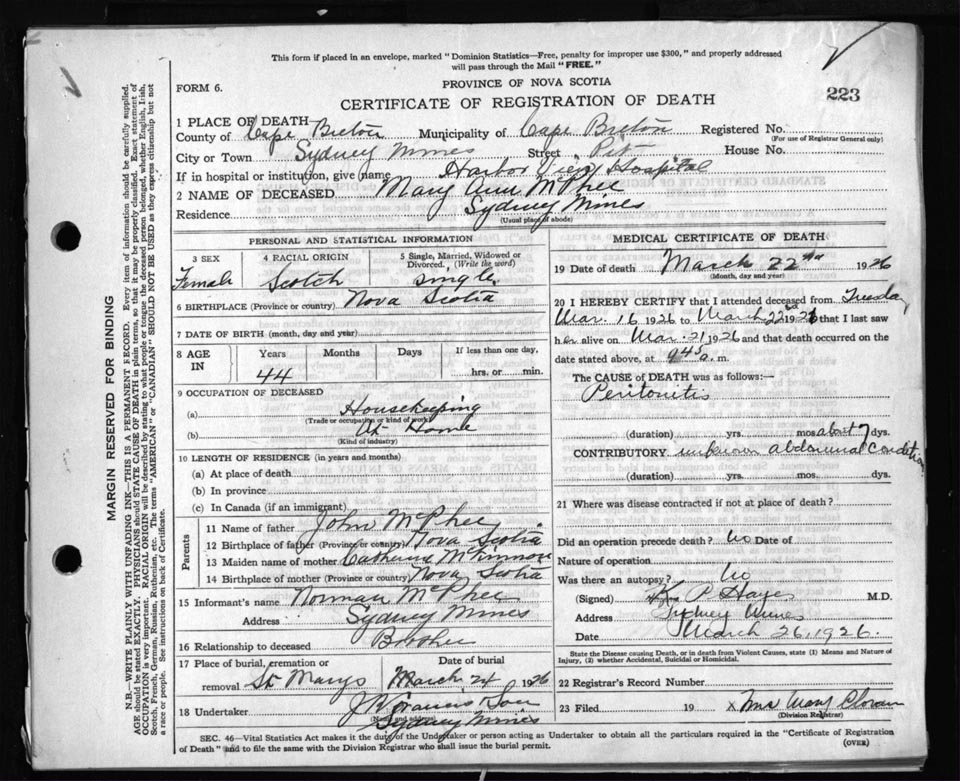 This form if placed in an envelope, marked "Dominion Statistics—Free, penalty for improper use $300," and properly addressed
will pass through the Mail "FREE."
PROVINCE OF NOVA SCOTIA
FORM 6.
CERTIFICATE OF REGISTRATION OF DEATH
223
1 PLACE OF DEATH
County of Cape Breton Municipality of Cape Breton Registered No.
(For use of Registrar General only)
City or Town Sydney Mines Street Pit House No.
If in hospital or institution, give name Harbor View Hospital
2 NAME OF DECEASED Mary Ann McPhee
Residence Sydney Mines
(Usual place of abode)
PERSONAL AND STATISTICAL INFORMATION
3 SEX 4 RACIAL ORIGIN 5 Single, Married, Widowed or Divorced. (Write the word)
Female Scotch single
6 BIRTHPLACE (Province or country) Nova Scotia
7 DATE OF BIRTH (month, day and year)
8 AGE IN Years Months Days If less than one day,
44 hrs. or min.
9 OCCUPATION OF DECEASED
(a) Housekeeping
(Trade or occupation or kind of work)
(b) At Home
(Kind of industry)
10 LENGTH OF RESIDENCE (in years and months)
(a) At place of death
(b) In province
(c) In Canada (if an immigrant)
Parents
11 Name of father John McPhee
12 Birthplace of father (Province or country) Nova Scotia
13 Maiden name of mother Catherine McKinnon
14 Birthplace of mother (Province or country) Nova Scotia
15 Informant's name Norman McPhee
Address Sydney Mines
16 Relationship to deceased Brother
17 Place of burial, cremation or removal St Marys Date of burial March 24 1926
18 Undertaker J Francis Son
(Name and address)
Sydney Mines
MEDICAL CERTIFICATE OF DEATH
19 Date of death March 22nd 1926
(Month, day and year)
20 I HEREBY CERTIFY that I attended deceased from Tuesday
Mar. 16 1926 to March 22nd 1926 that I last saw
her alive on Mar. 21 1926 and that death occurred on the
date stated above, at 9 45 a. m.
The CAUSE of DEATH was as follows:—
Peritonitis
(duration) yrs. mos. about 7 dys.
CONTRIBUTORY unknown abdominal condition
(duration) yrs. mos. dys.
21 Where was disease contracted if not at place of death?
Did an operation precede death? no Date of
Nature of operation
Was there an autopsy? no
(Signed) P Hayes M.D.
Address Sydney Mines
Date March 26, 1926.
State the Disease causing Death, or in death from Violent Causes, state (1) Means and Nature of
Injury, (2) whether Accidental, Suicidal or Homicidal.
22 Registrar's Record Number
23 Filed 19 x Mrs Mary Cloran
(Division Registrar)
SEC. 46—Vital Statistics Act makes it the duty of the Undertaker or person acting as Undertaker to obtain all the particulars required in the "Certificate of Registration
of Death" and to file the same with the Division Registrar who shall issue the burial permit.
(OVER)
MARGIN RESERVED FOR BINDING
N.B.—WRITE PLAINLY WITH UNFADING INK—THIS IS A PERMANENT RECORD. Every item of information should be carefully supplied.
AGE should be stated EXACTLY. PHYSICIANS should STATE CAUSE OF DEATH in plain terms, so that it may be properly classified. Exact statement of
OCCUPATION is very important. RACIAL ORIGIN will be described by stating to what people or tongue the deceased person belonged, whether English, Irish,
Scotch, French, German, Russian, Ruthenian, etc. The terms "AMERICAN" or "CANADIAN" SHOULD NOT BE USED as they express citizenship but not
a race or people. See instructions on back of Certificate.